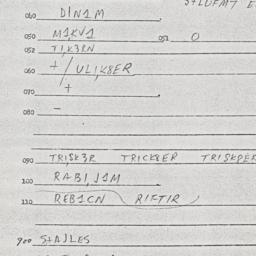 060 DIN1M
050 M1KV1 051 O
052 T1K3RN
060 + /ULIK8ER
070 +
080 –
090 TRISK3R TRICK8ER TRISKPER
100 RABI,J1M
110 REB1CN RIFTIR
900 STAJLES